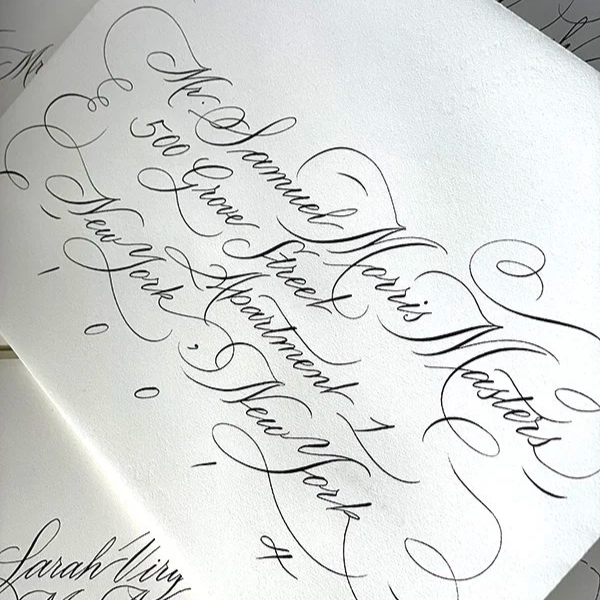 Mr. Samuel Morris Masters,
500 Grove Street Apartment 1
New York, New York
1 0 0 1 4
Sarah Virg